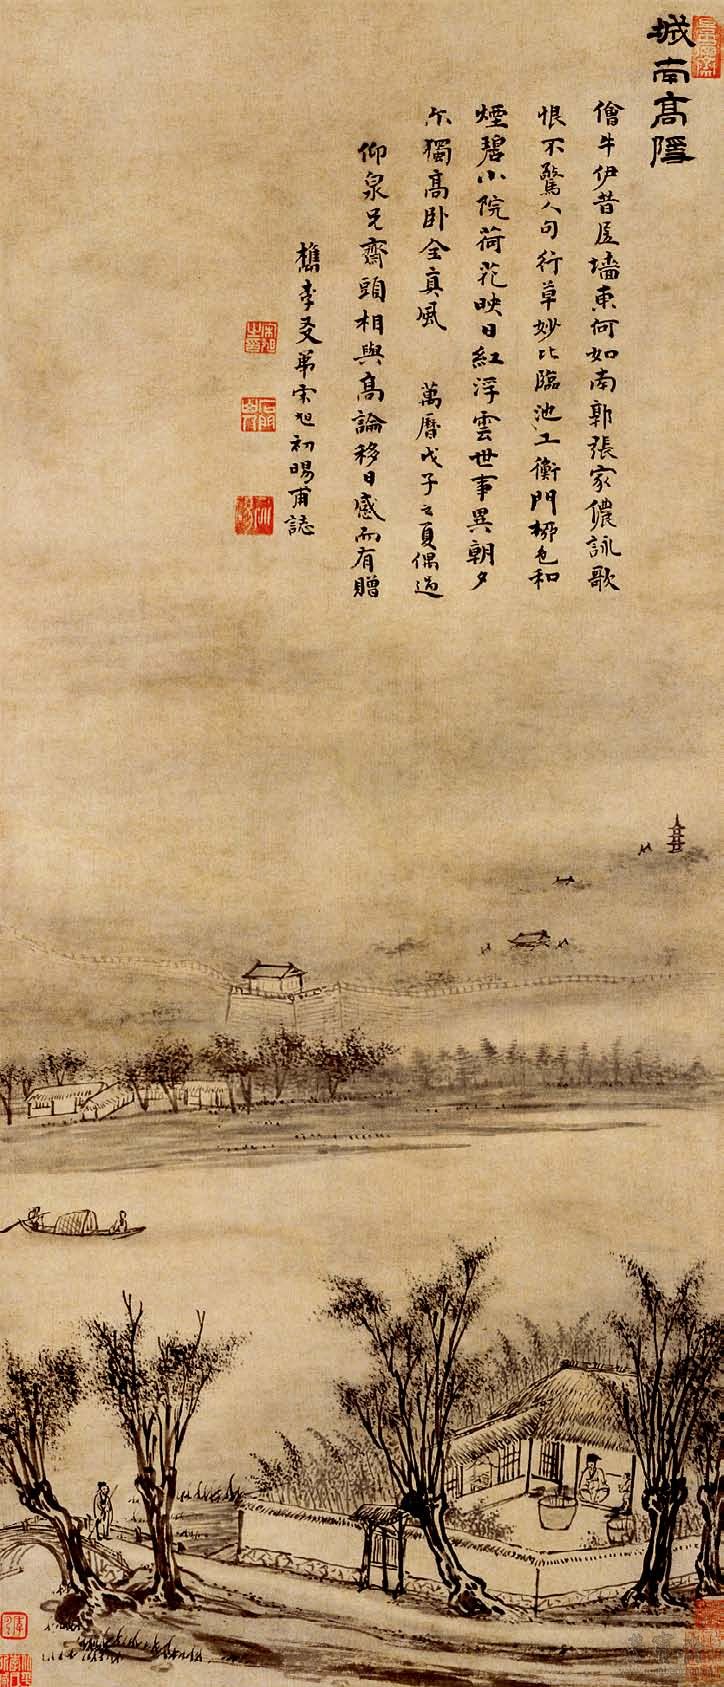 城南高隱
儈牛伊昔居墻東何如南郭張家儂詠歌
恨不驚人句行草妙比臨池工衡門柳色和
煙碧小院荷花映日紅浮雲世事異朝夕
尔獨高臥全真風 萬曆戊子之夏偶過
仰泉兄齋頭相與高論移日感而有贈
檇李友弟宋旭初暘甫誌